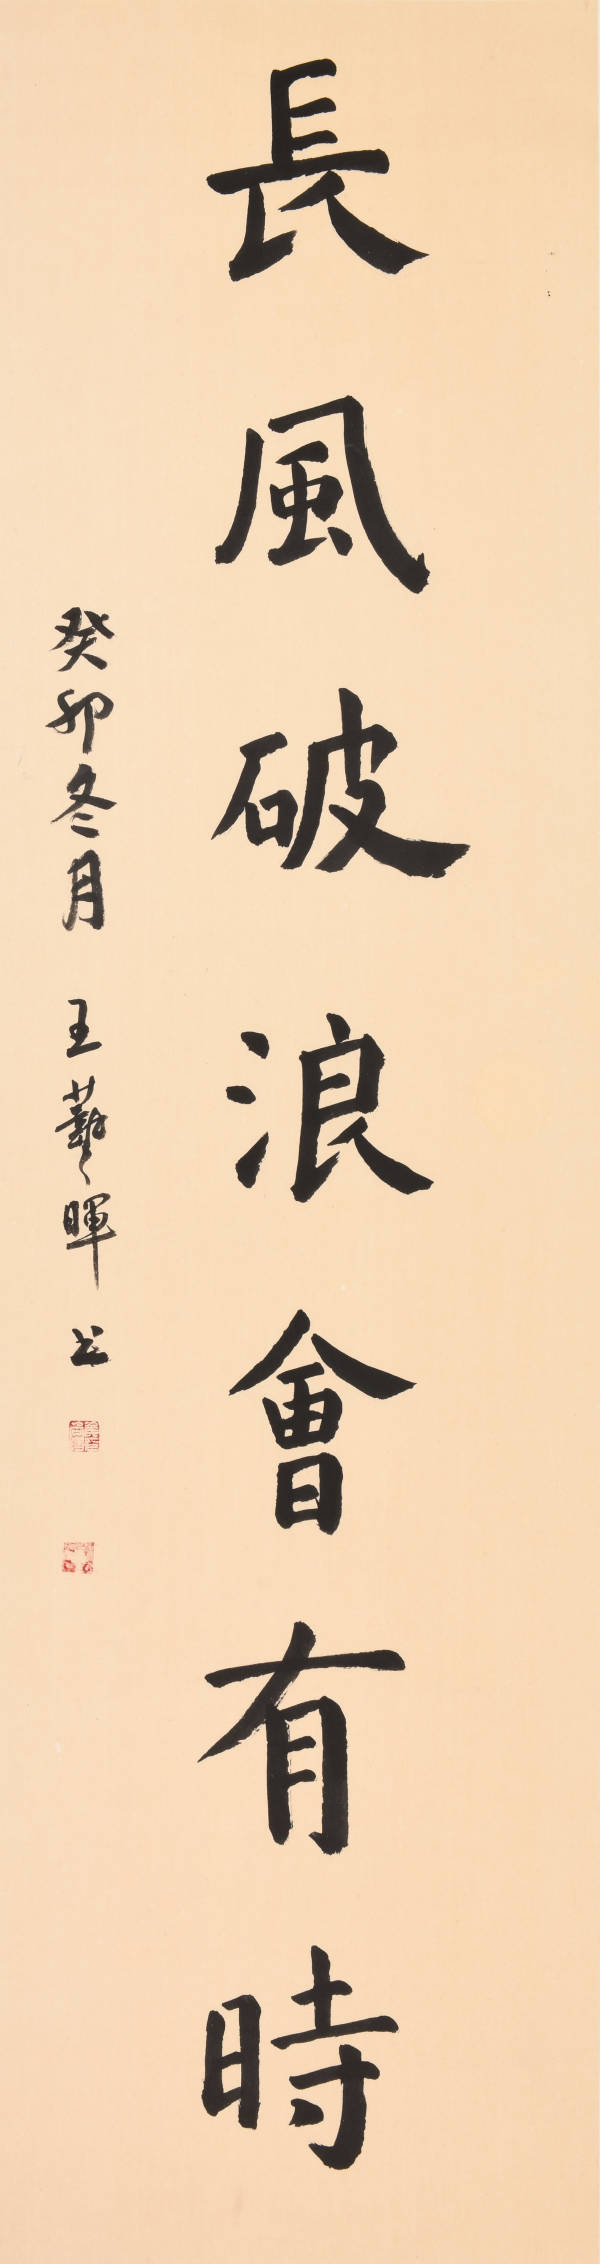 長風破浪會有時
癸卯冬月 王華暉书